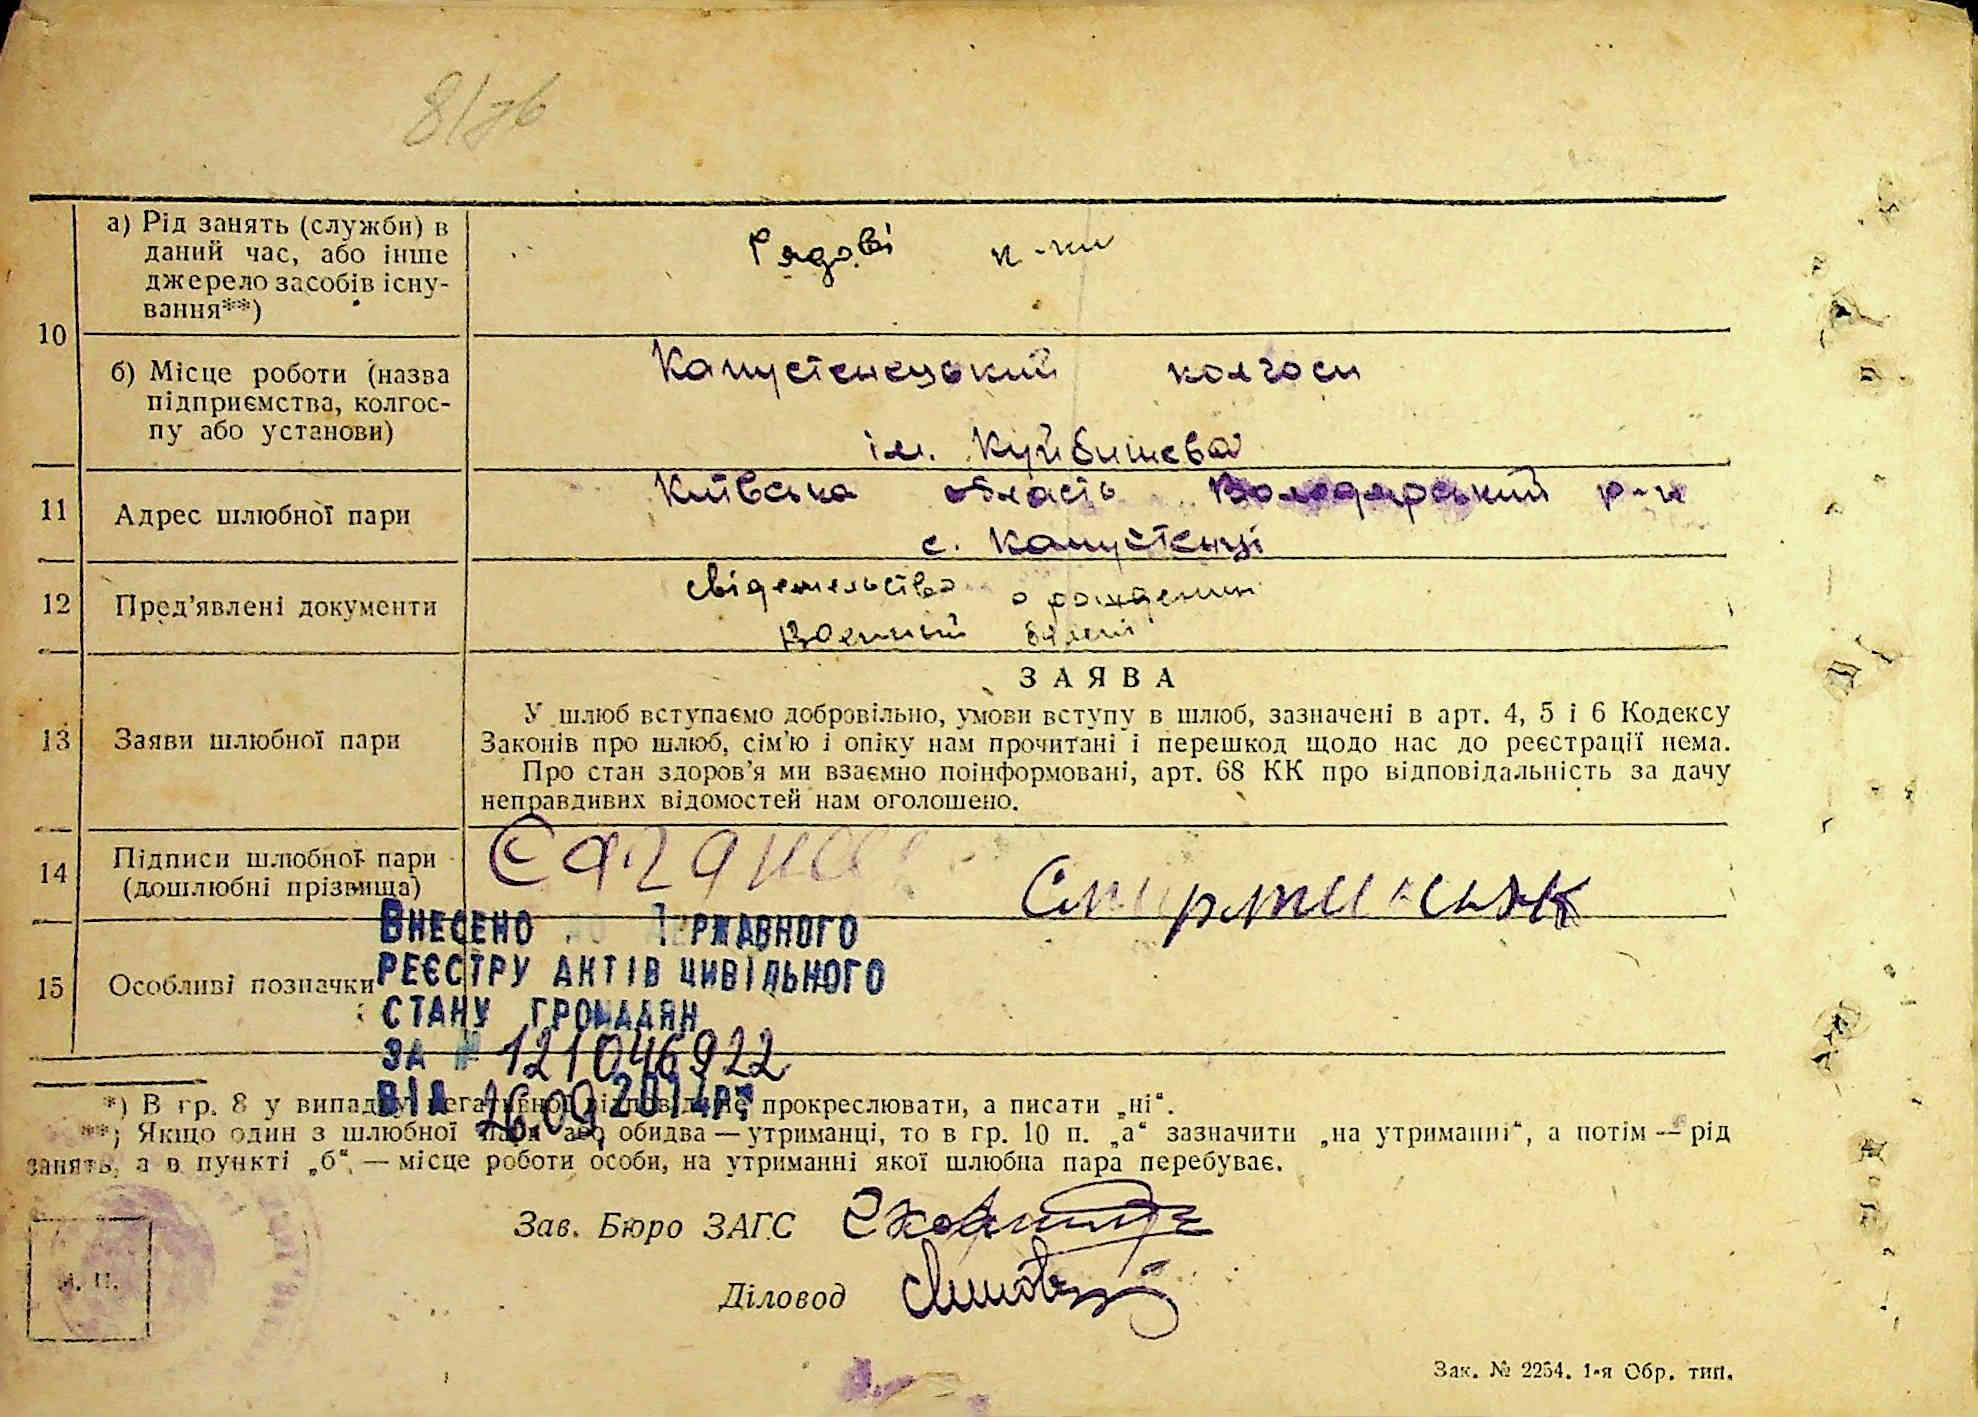 а) Рід занять (служби) в
даний час, або інше
джерело засобів існу-
вання**)
Рядові к-ки
10
б) Місце роботи (назва
підприємства, колгос-
пу або установи)
Капустенецький колгосп
ім. Куйбишева
11
Адрес шлюбної пари
Київська область Володарський р-н
с. Капустенці
12
Пред’явлені документи
свідетельство о рождении
Военный билет
13
Заяви шлюбної пари
ЗАЯВА
У шлюб вступаємо добровільно, умови вступу в шлюб, зазначені в арт. 4, 5 і 6 Кодексу
Законів про шлюб, сім’ю і опіку нам прочитані і перешкод щодо нас до реєстрації нема.
Про стан здоров’я ми взаємно поінформовані, арт. 68 КК про відповідальність за дачу
неправдивих відомостей нам оголошено.
14
Підписи шлюбної пари
(дошлюбні прізвища)
15
Особливі позначки
ВНЕСЕНО ДО ДЕРЖАВНОГО
РЕЄСТРУ АКТІВ ЦИВІЛЬНОГО
СТАНУ ГРОМАДЯН
ЗА № 121046922
ВІД 26.09.2014р.
*) В гр. 8 у випадку негативної відповіді не прокреслювати, а писати „ні“.
**) Якщо один з шлюбної пари або обидва — утриманці, то в гр. 10 п. „а“ зазначити „на утриманні“, а потім — рід
занять, а в пункті „б“, — місце роботи особи, на утриманні якої шлюбна пара перебуває.
Зав. Бюро ЗАГС
Діловод
М. П.
Зак. № 2254. 1-я Обр. тип.